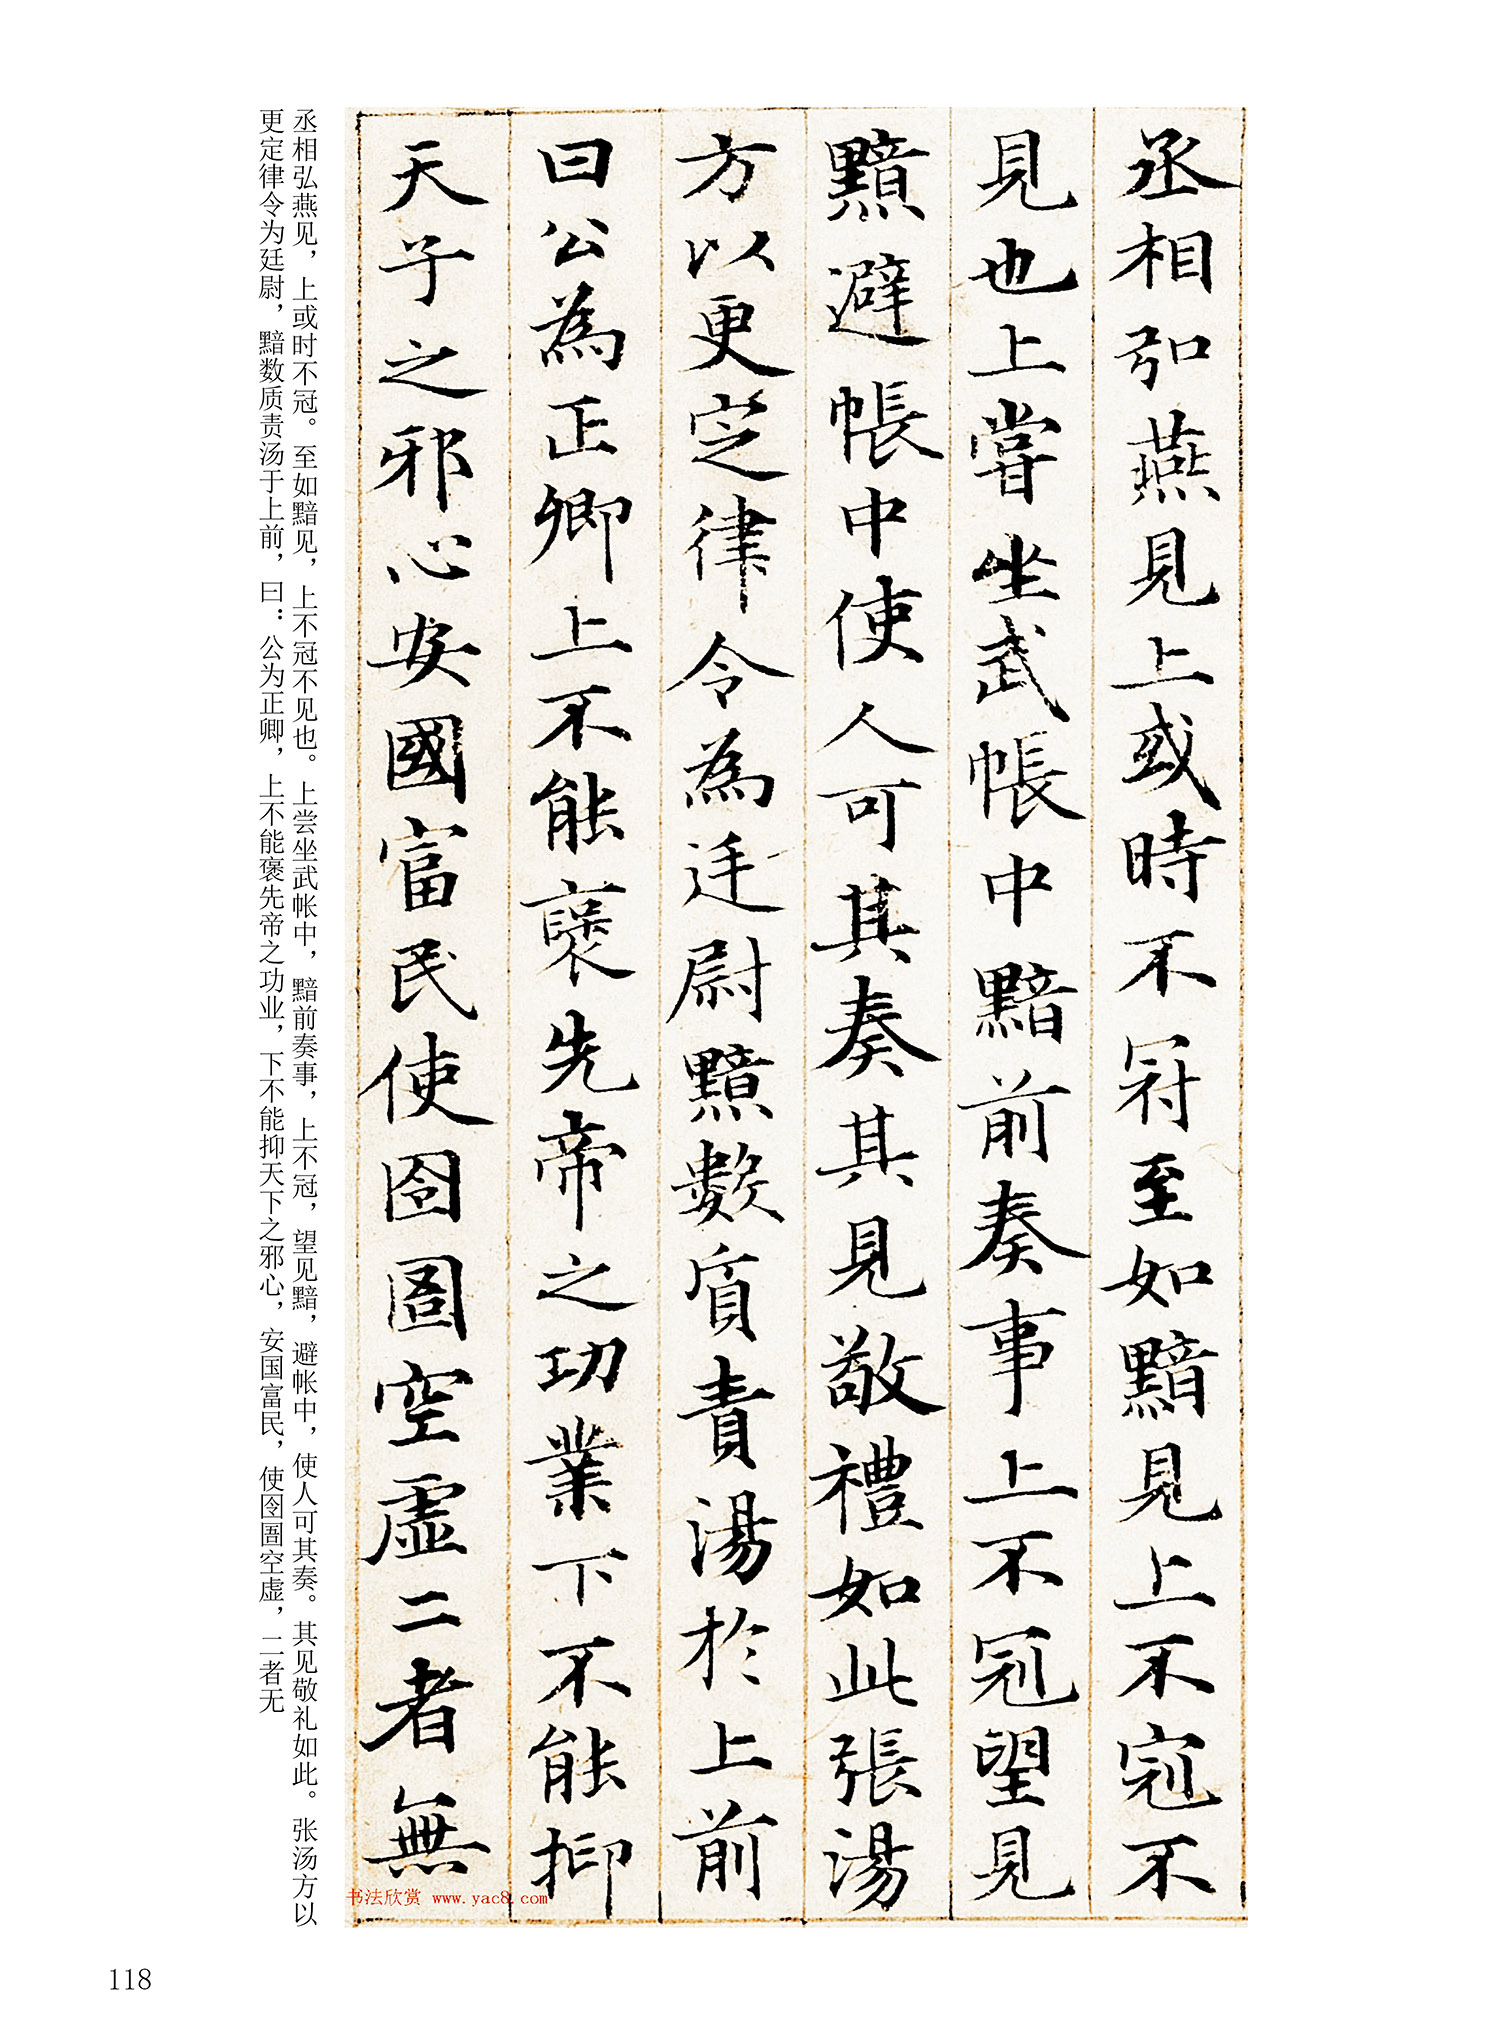 丞相弘燕見上或時不冠至如黯見上不冠不
見也上嘗坐武帳中黯前奏事上不冠望見
黯避帳中使人可其奏其見敬禮如此張湯
方以更定律令為廷尉黯數質責湯於上前
曰公為正卿上不能褒先帝之功業下不能抑
天子之邪心安國富民使囹圄空虛二者無
丞相弘燕见，上或时不冠。至如黯见，上不冠不见也。上尝坐武帐中，黯前奏事，上不冠，望见黯，避帐中，使人可其奏。其见敬礼如此。张汤方以
更定律令为廷尉，黯数质责汤于上前，曰：公为正卿，上不能褒先帝之功业，下不能抑天下之邪心，安国富民，使囹圄空虚，二者无
书法欣赏 www.yac8.com
118